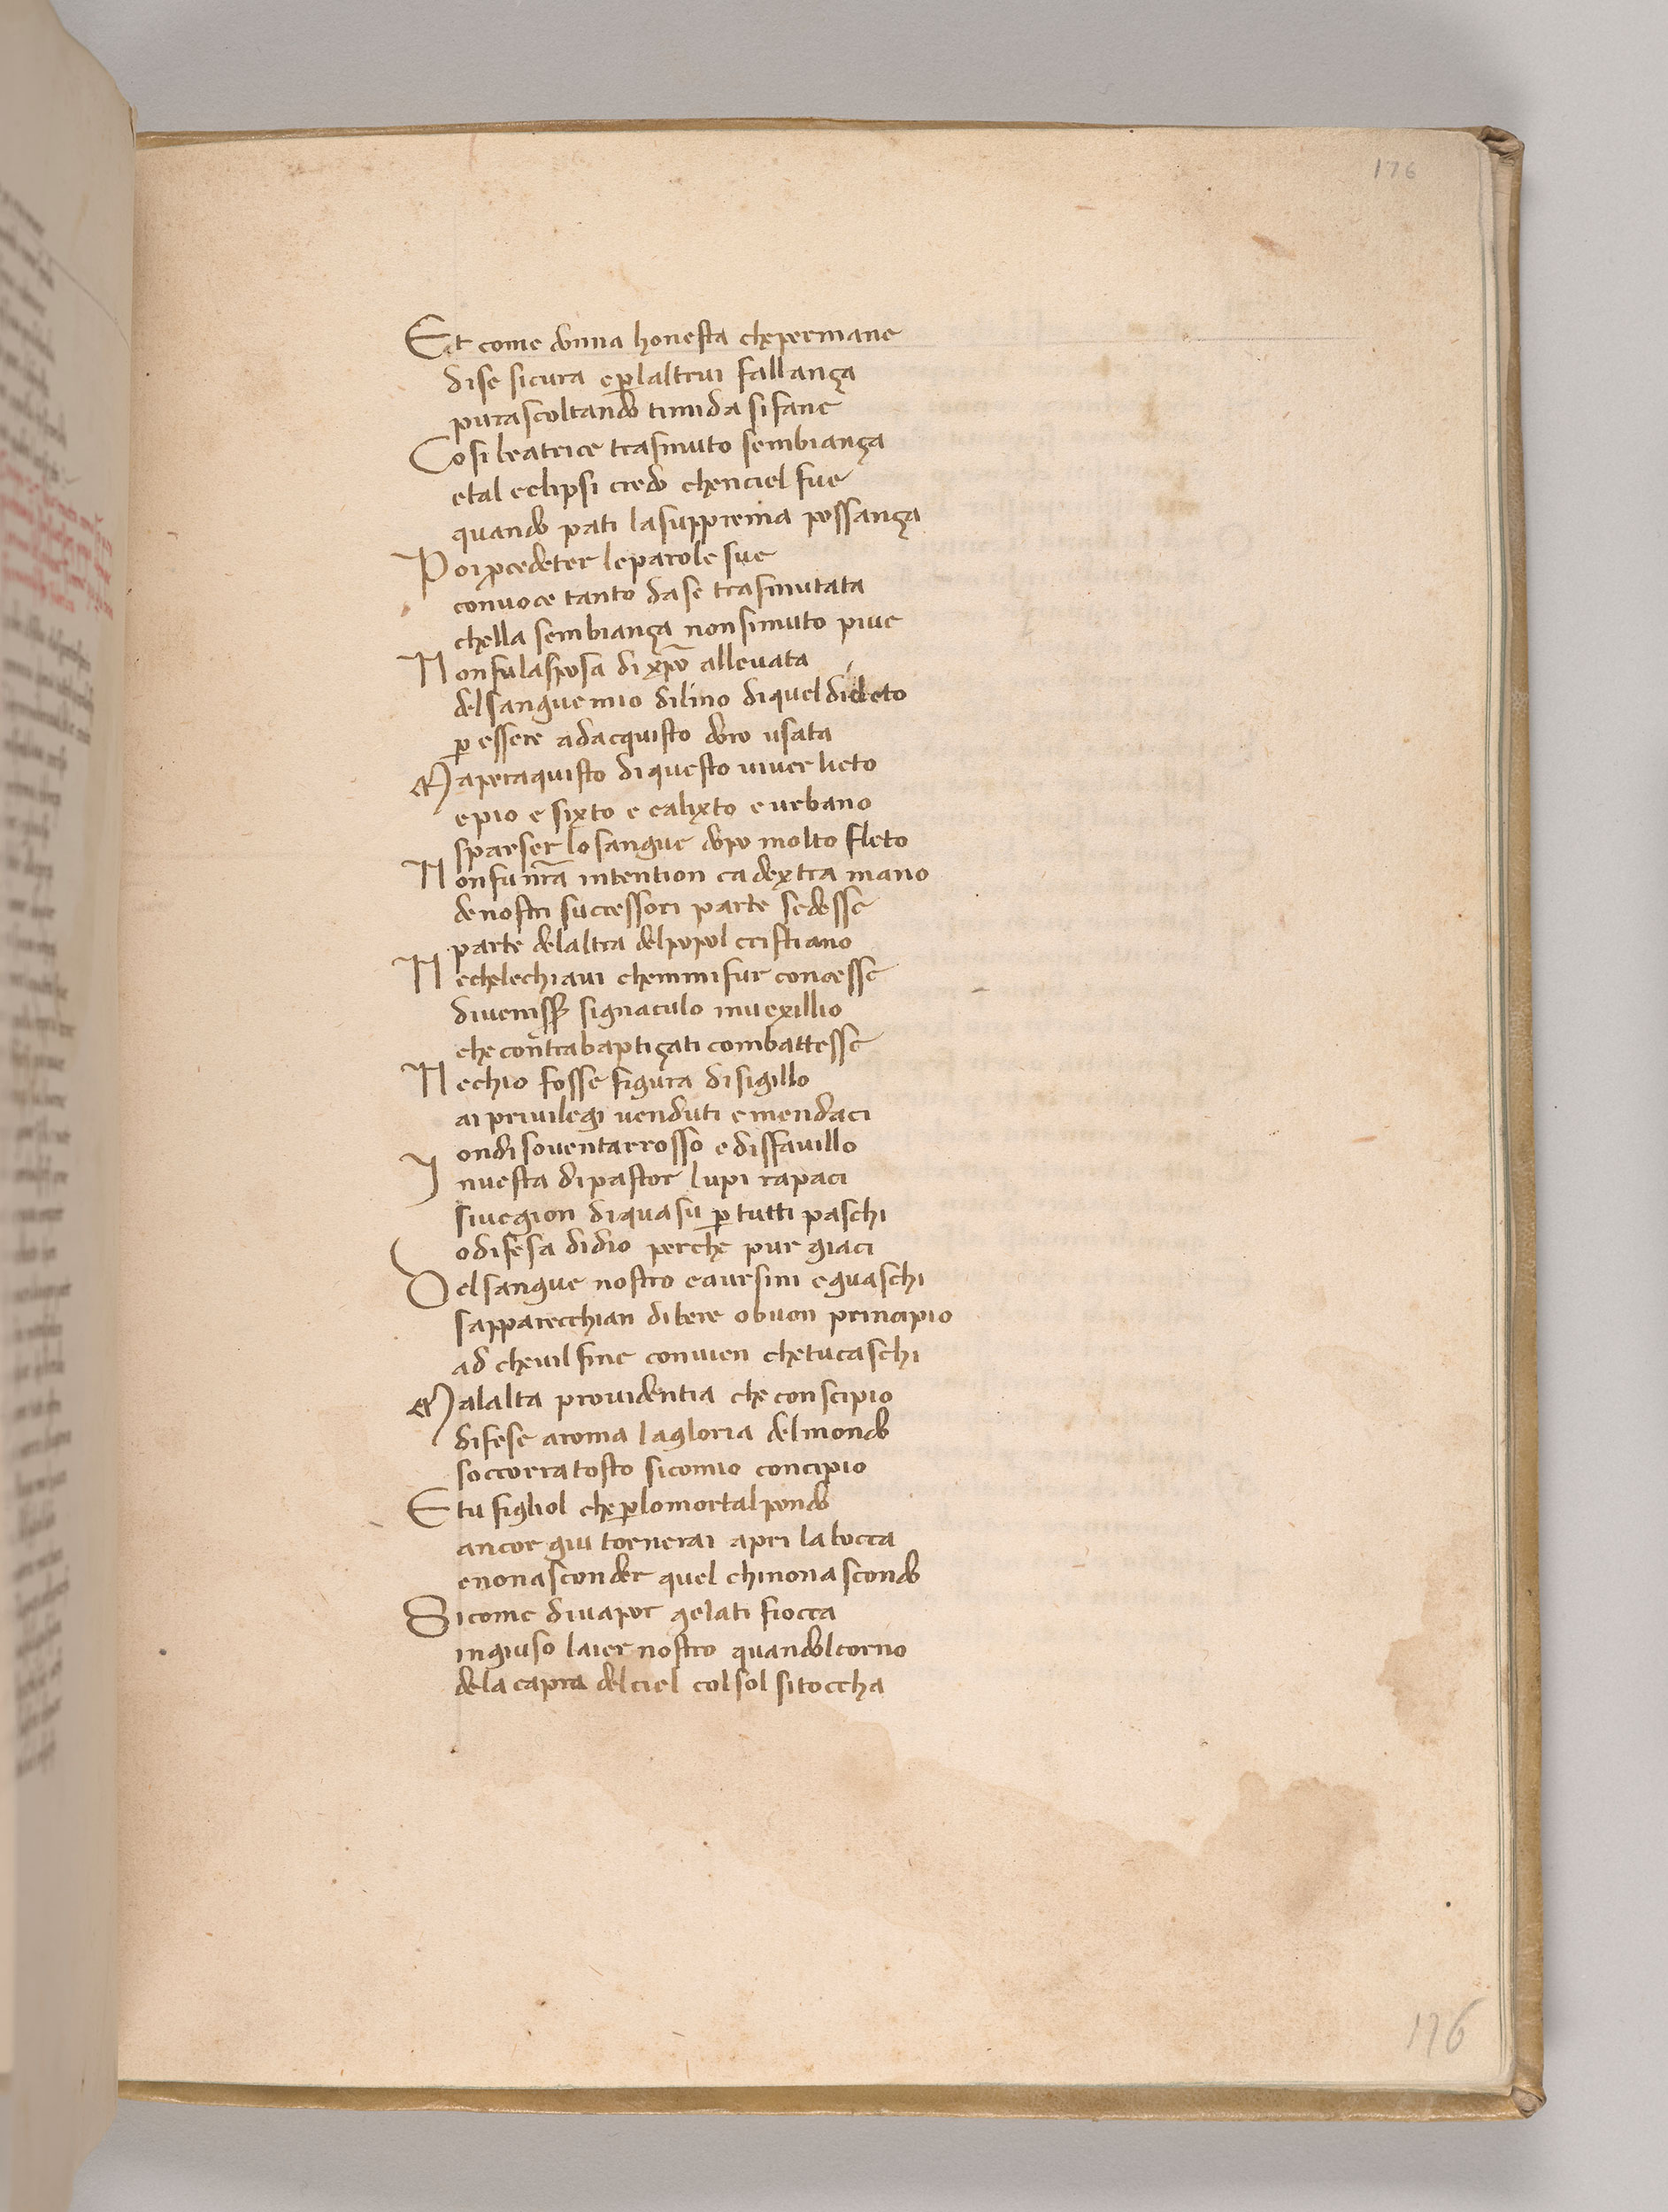 176
Et come donna honesta chepermane
dise sicura eꝑlaltrui fallança
purascoltando timida sifane
Cosi beatrice trasmuto sembiança
etal eclipsi credo chenciel fue
quando pati lasupprema possança
Poi ꝓcedeter leparole sue
convoce tanto dase trasmutata
chella sembiança nonsimuto piue
Nonfulasposa di xp̄o allevata
delsangue mio dilino diquel dicleto
ꝑ essere adacquisto doro usata
Maperaquisto diquesto viver lieto
epio e sixto e calixto e urbano
sparser lo sangue dopo molto fleto
Nonfu nr̄a intention ca dextra mano
denostri successori parte sedesse
parte delaltra delpopol cristiano
Nechelechiavi chemmifur concesse
diveniss̄ signaculo invexillio
che contrabaptiçati combattesse
Nechio fosse figura disigillo
ai privilegi venduti emendaci
ondisoventarrosso edisfavillo
Investa dipastor lupi rapaci
sivegion diquasu ꝑ tutti paschi
odifesa didio perche pur giaci
Delsangue nostro caursini eguaschi
sapparecchian dibere obuon principio
ad chevil fine convien chetucaschi
Malalta providentia che conscipio
difese aroma lagloria delmondo
soccorratosto sicomio concipio
Etu figliol cheꝑlomortalpondo
ancor giu tornerai apri labocca
enonasconder quel chinonascondo
Sicome divapor gelati fiocca
ingiuso laier nostro quandolcorno
dela capra delciel colsol sitoccha
176